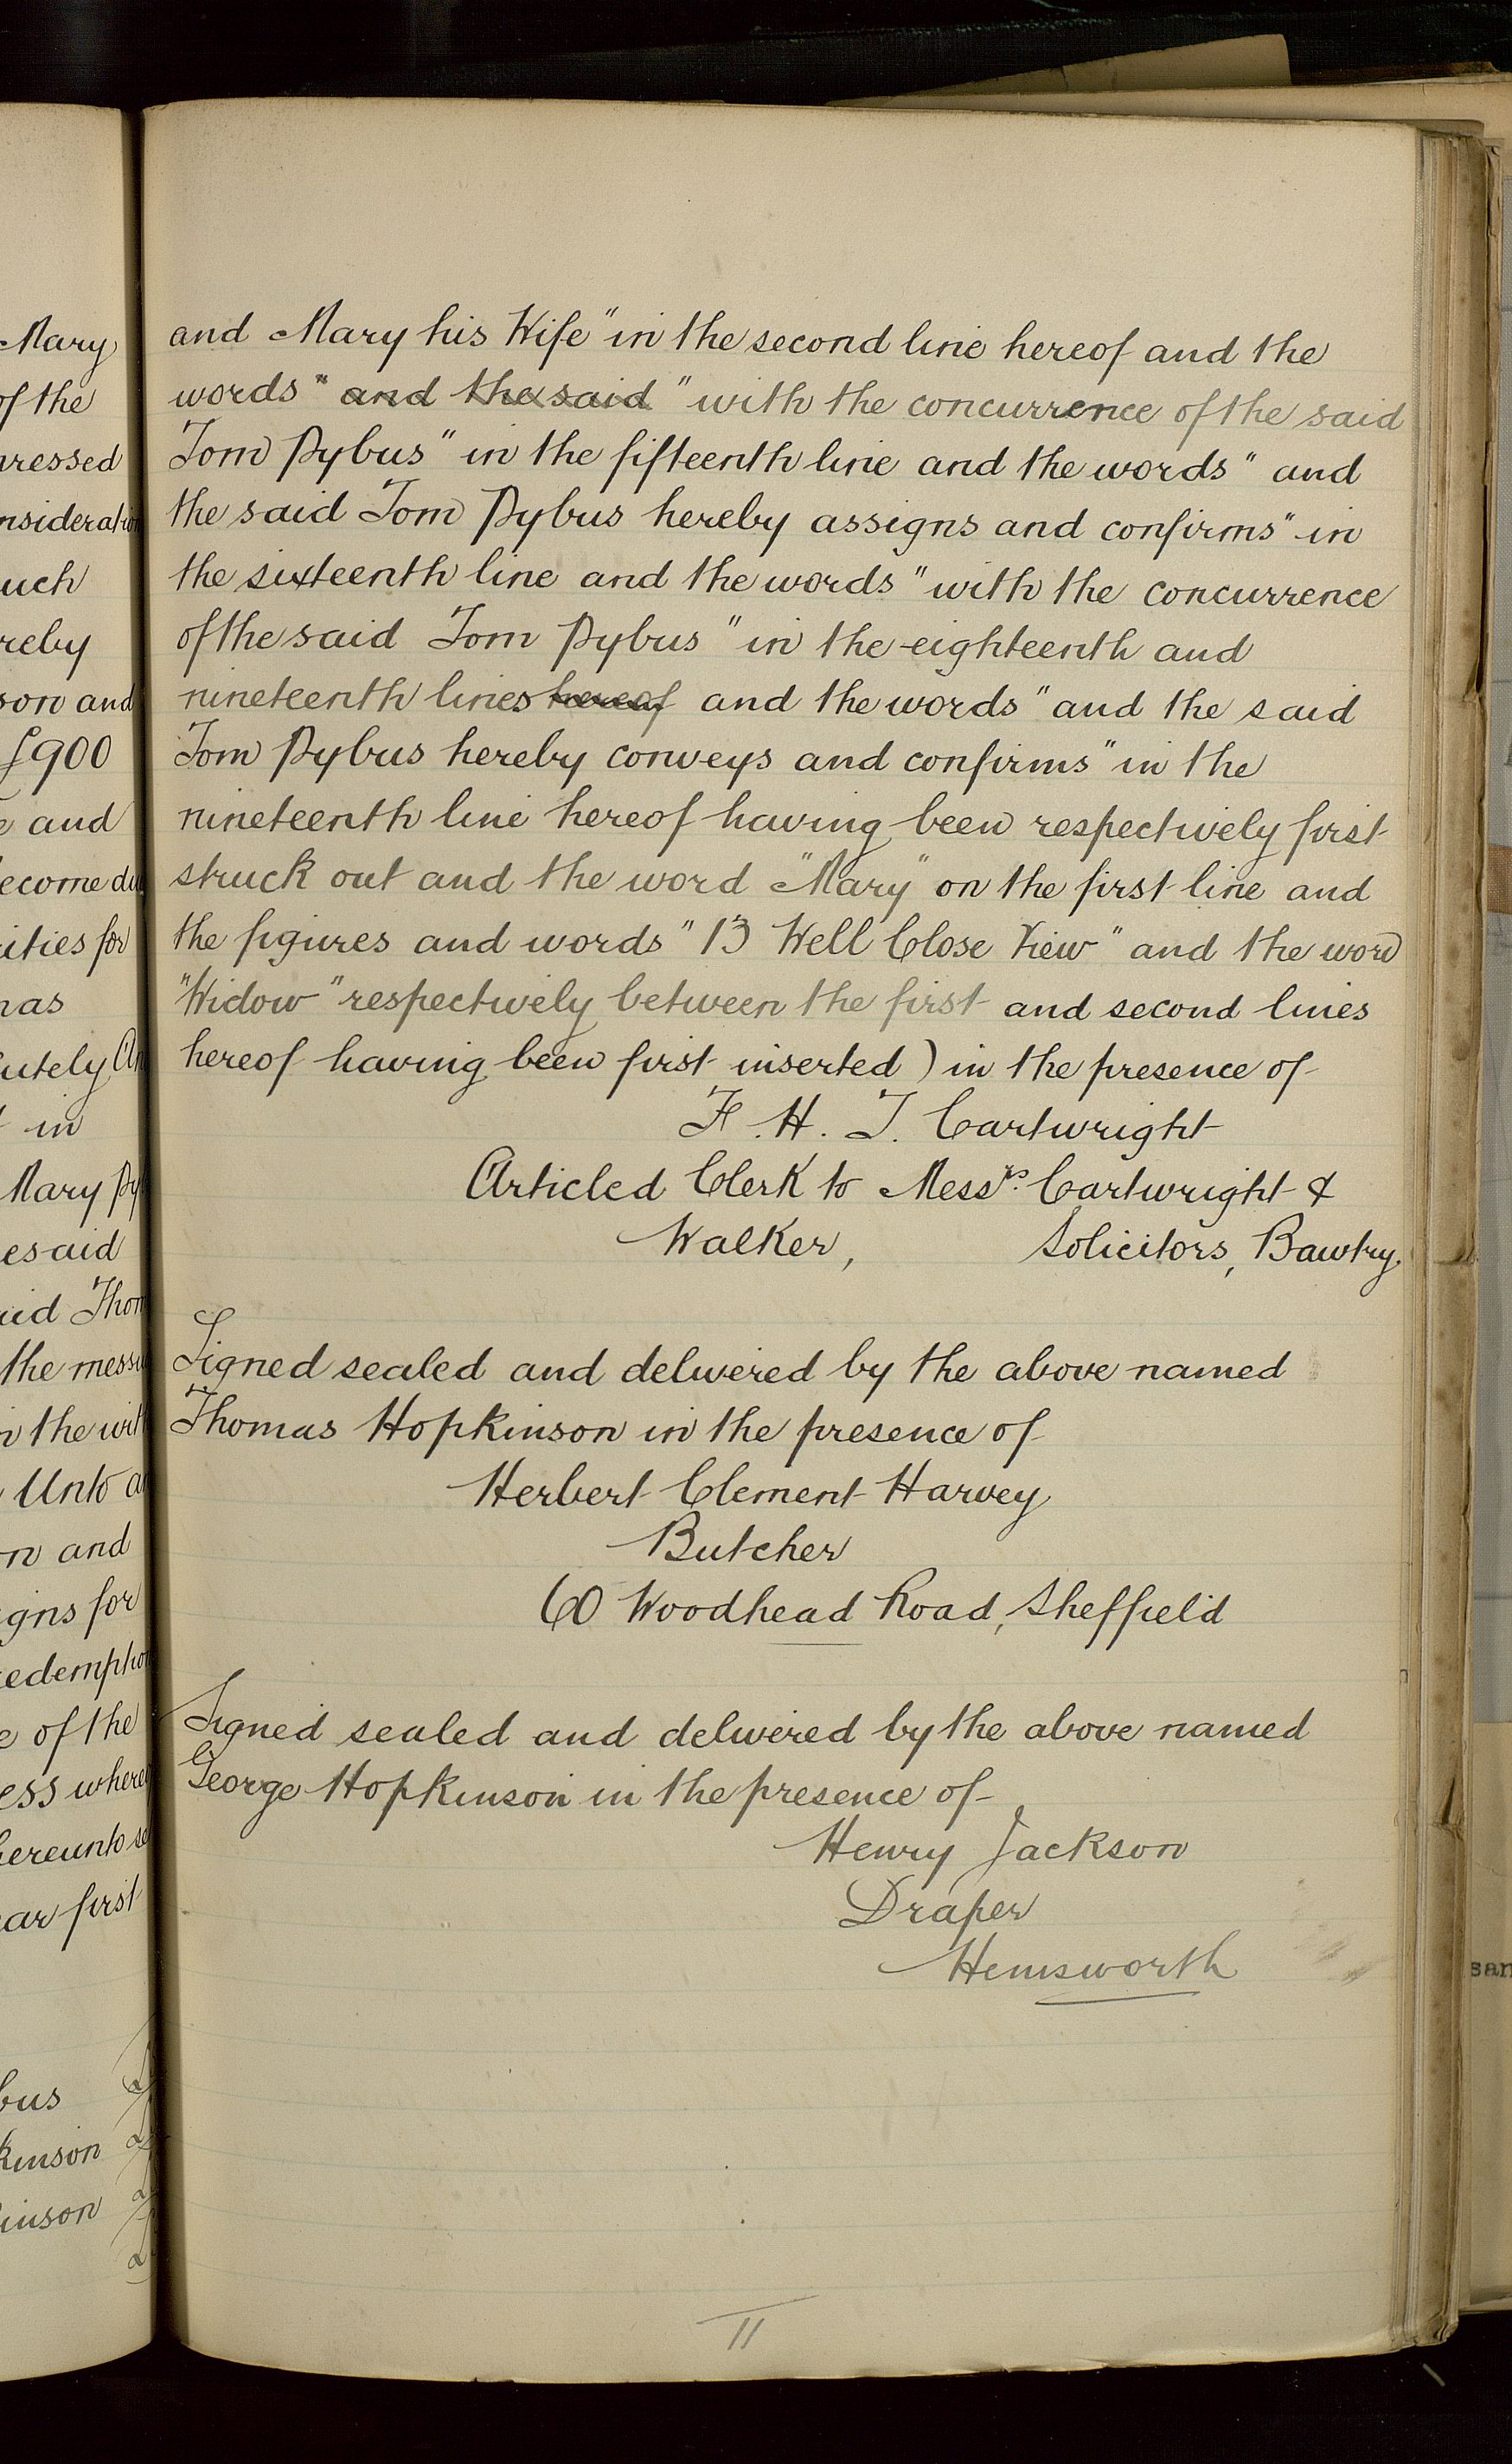 and Mary his Wife" in the second line hereof and the
words " and the said " with the concurrence of the said
Tom Pybus" in the fifteenth line and the words " and
the said Tom Pybus hereby assigns and confirms" in
the sixteenth line and the words "with the concurrence
of the said Tom Pybus" in the eighteenth and
nineteenth lines hereof and the words "and the said
Tom Pybus hereby conveys and confirms" in the
nineteenth line hereof having been respectively first
struck out and the word "Mary" on the first line and
the figures and words "13 Well Close View" and the word
"Widow" respectively between the first and second lines
hereof having been first inserted) in the presence of
F. H. T. Cartwright
Articled Clerk to Messrs. Cartwright &
Walker, Solicitors, Bawtry.
Signed sealed and delivered by the above named
Thomas Hopkinson in the presence of
Herbert Clement Harvey
Butcher
60 Woodhead Road, Sheffield
Signed sealed and delivered by the above named
George Hopkinson in the presence of
Henry Jackson
Draper
Hemsworth
11
Mary
of the
£900
and
in
Mary
and
of the
first